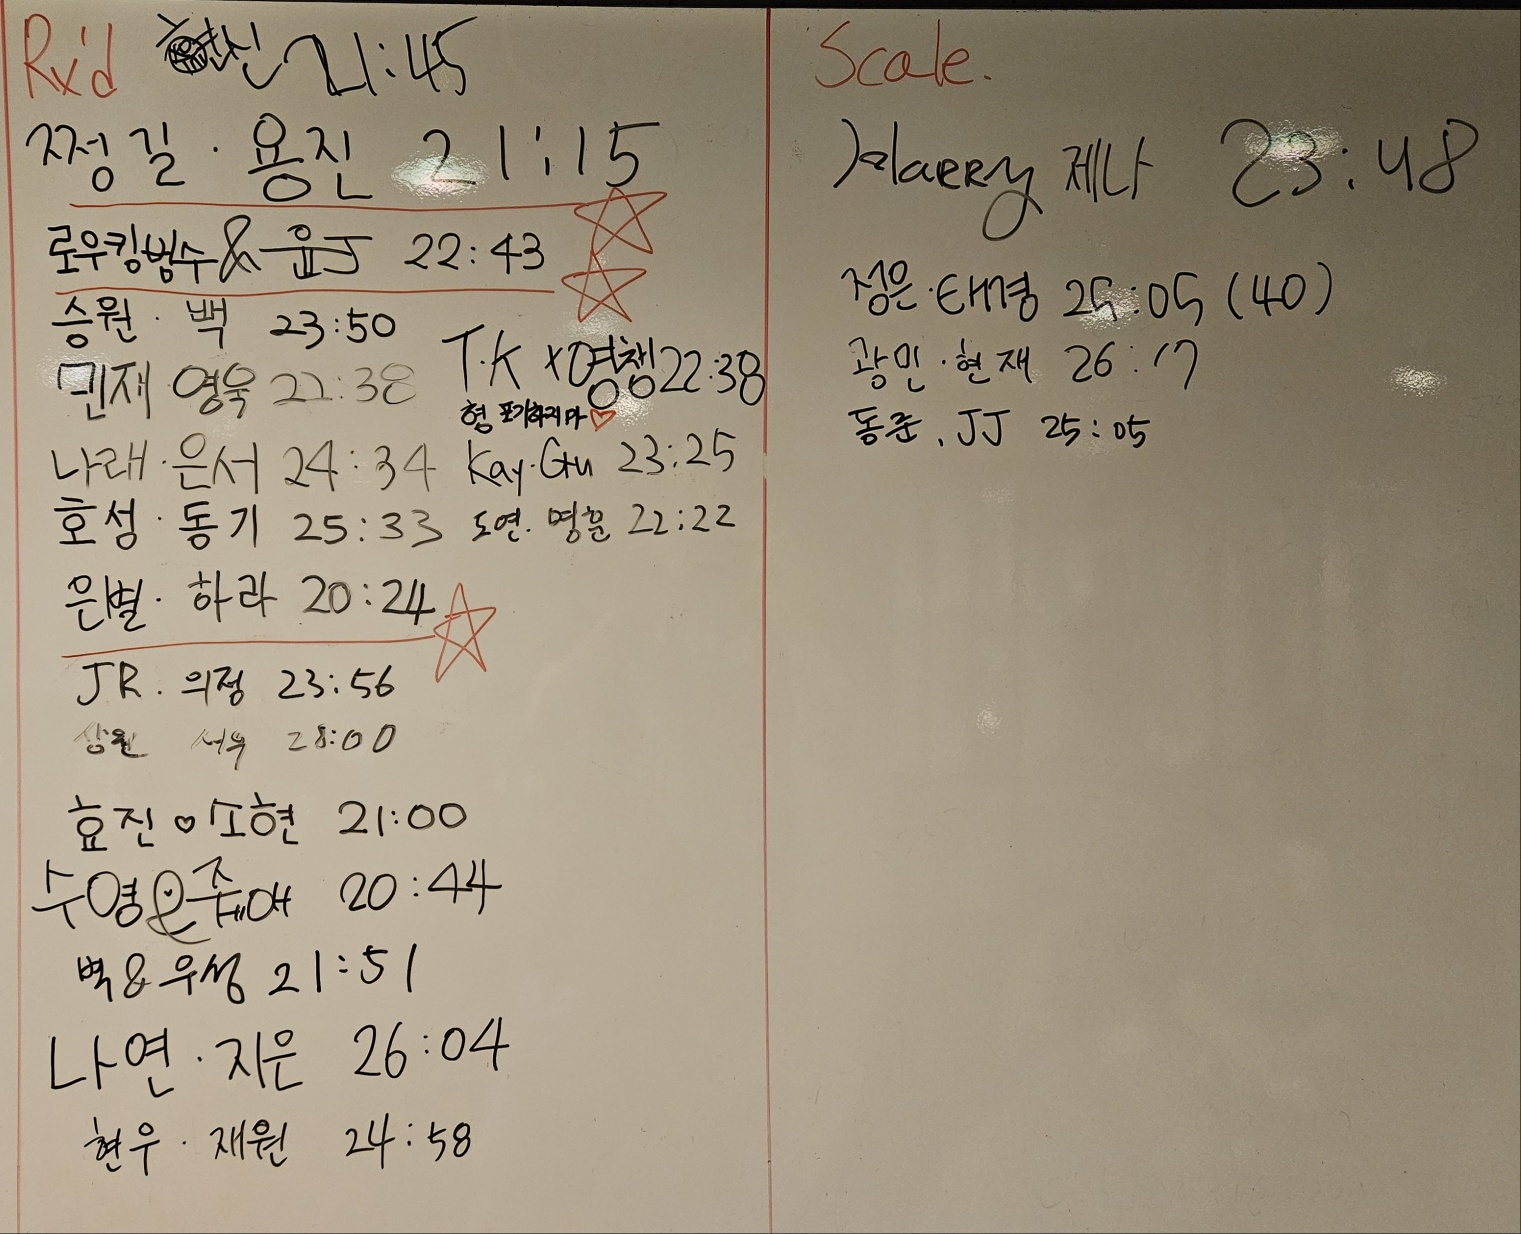 Rx'd 현신 21:45
쩡길 · 용진 21:15
로우킹범수 & 윤J 22:43
승원 · 백 23:50
민재 · 영욱 22:38
T.K x 영챙 22:38
형 포기하지마♡
나래 · 은서 24:34
Kay·Gu 23:25
호성 · 동기 25:33
도연. 명훈 22:22
은별 · 하라 20:24
JR. 의정 23:56
상원 28:00
효진♡소현 21:00
수영 20:44
벽&우성 21:51
나연 · 지은 26:04
현우 · 재원 24:58
Scale.
Harry 제나 23:48
정은·태경 25:05 (40)
광민·현재 26:17
동준. JJ 25:05